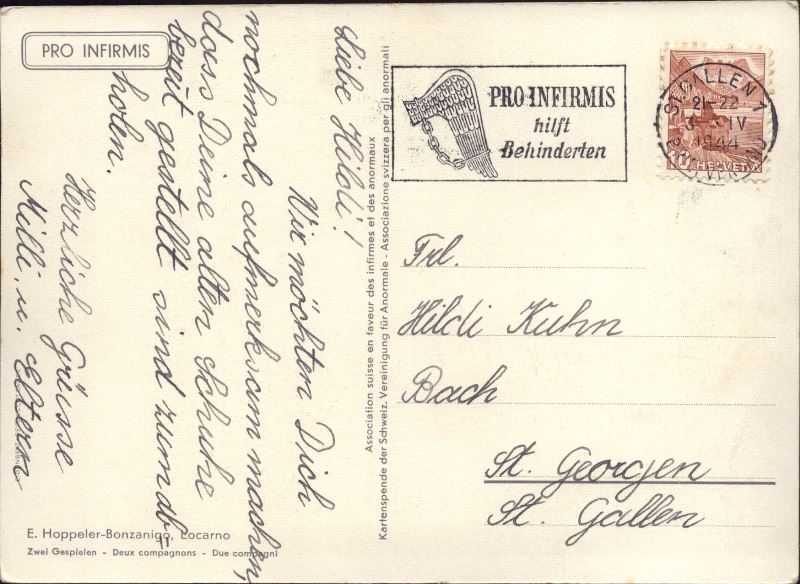 PRO INFIRMIS
Liebe Hildi!
Wir möchten Dich
nochmals aufmerksam machen,
dass Deine alten Schuhe
bereit gestellt sind zum ab=
holen.
Herzliche Grüsse
Milli u. Eltern
E. Hoppeler-Bonzanigo, Locarno
Zwei Gespielen - Deux compagnons - Due compagni
Association suisse en faveur des infirmes et des anormaux
Kartenspende der Schweiz. Vereinigung für Anormale - Associazione svizzera per gli anormali
PRO INFIRMIS
hilft
Behinderten
ST. GALLEN 1
21-22
3. IV
1944
HELVETIA
Frl.
Hildi Kuhn
Bach
St. Georgen
St. Gallen